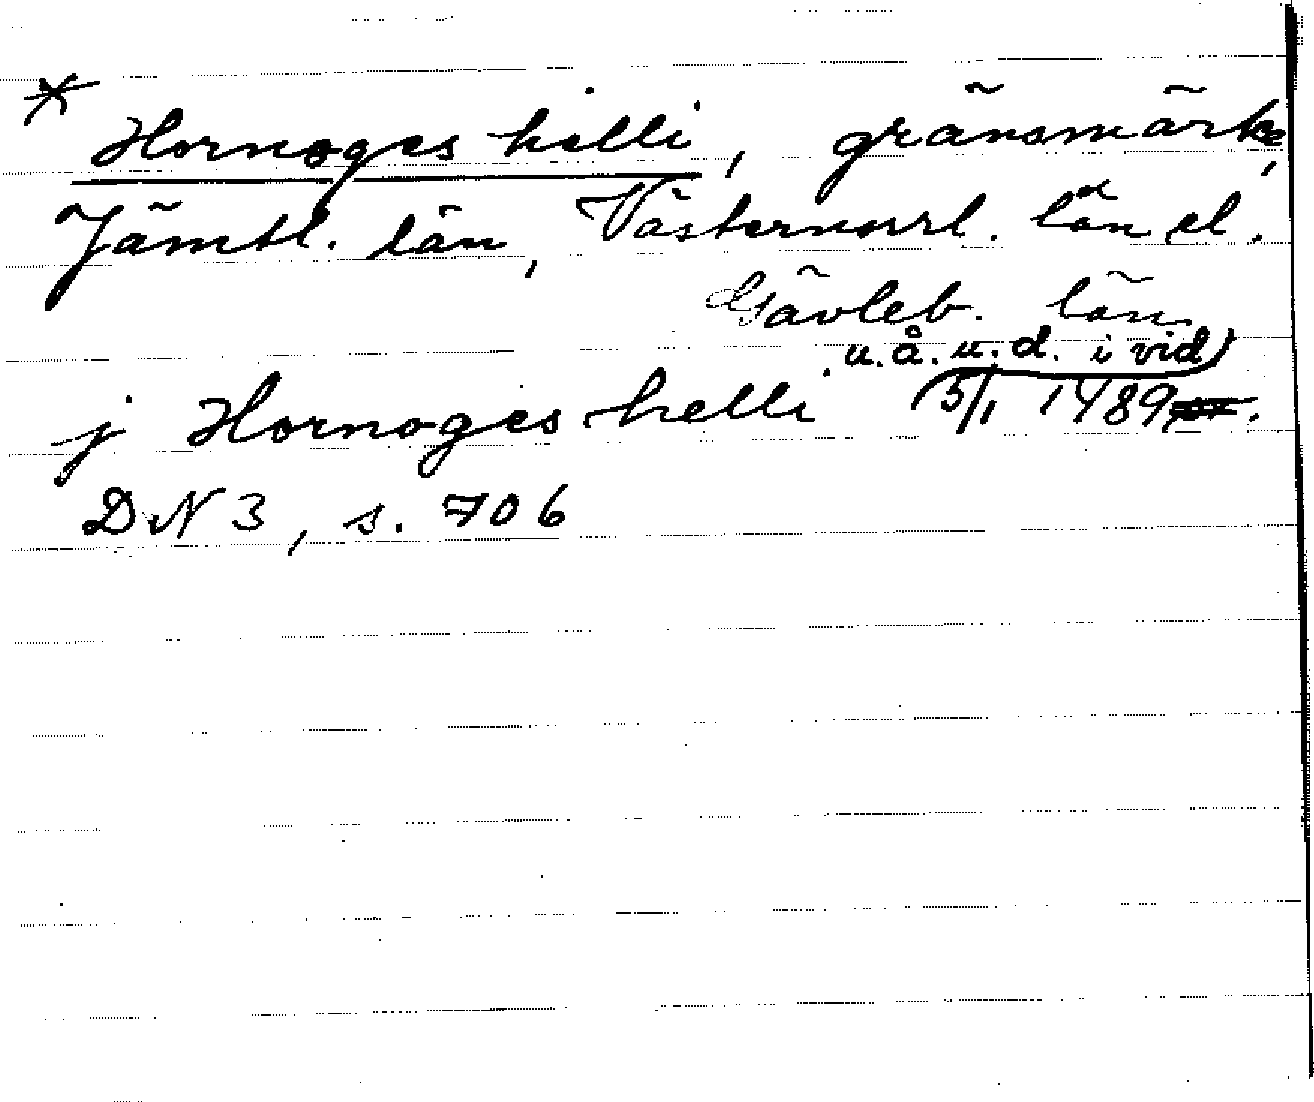 * Hornoges helli, gränsmärke,
Jämtl. län, Västernorrl. län el.
Gävleb. län
u.å.u.d. i vid
j Hornoges helli (5/1 1489).
DN 3, s. 706